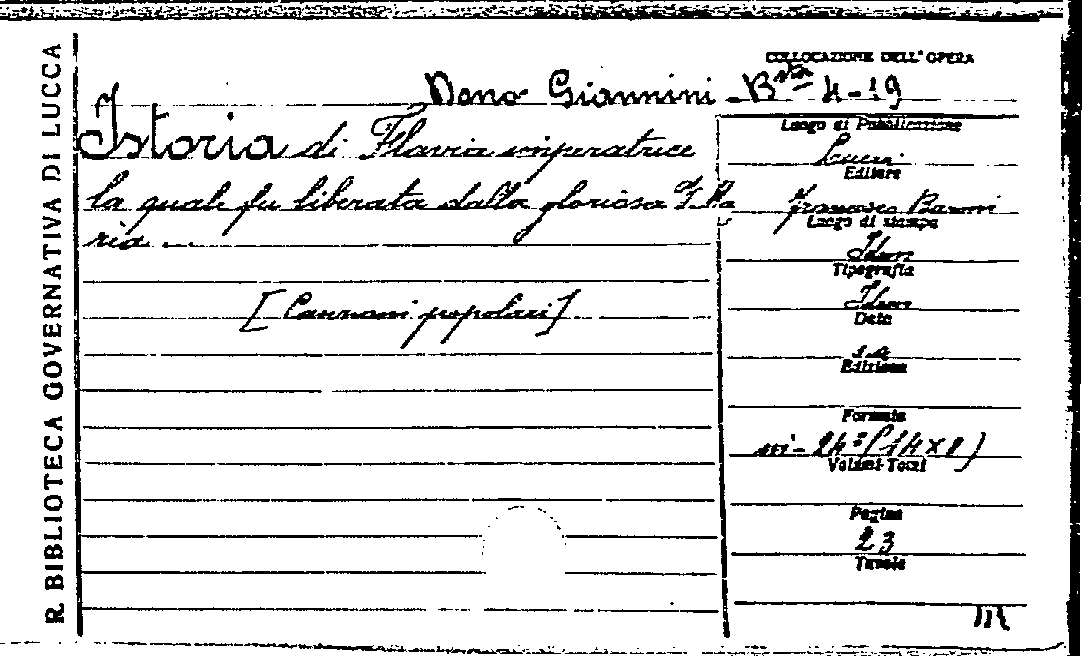 R. BIBLIOTECA GOVERNATIVA DI LUCCA
COLLOCAZIONE DELL' OPERA
Dono Giannini B.ta 4-19
Istoria di Flavia imperatrice
la quale fu liberata dalla gloriosa V. Ma
ria ...
[Canzoni popolari]
Luogo di Pubblicazione
Lucca
Editore
Francesco Baroni
Luogo di stampa
Idem
Tipografia
Idem
Data
s.a
Edizione
Formato
in-24° (14x8)
Volumi-Tomi
Pagine
23
Tavole